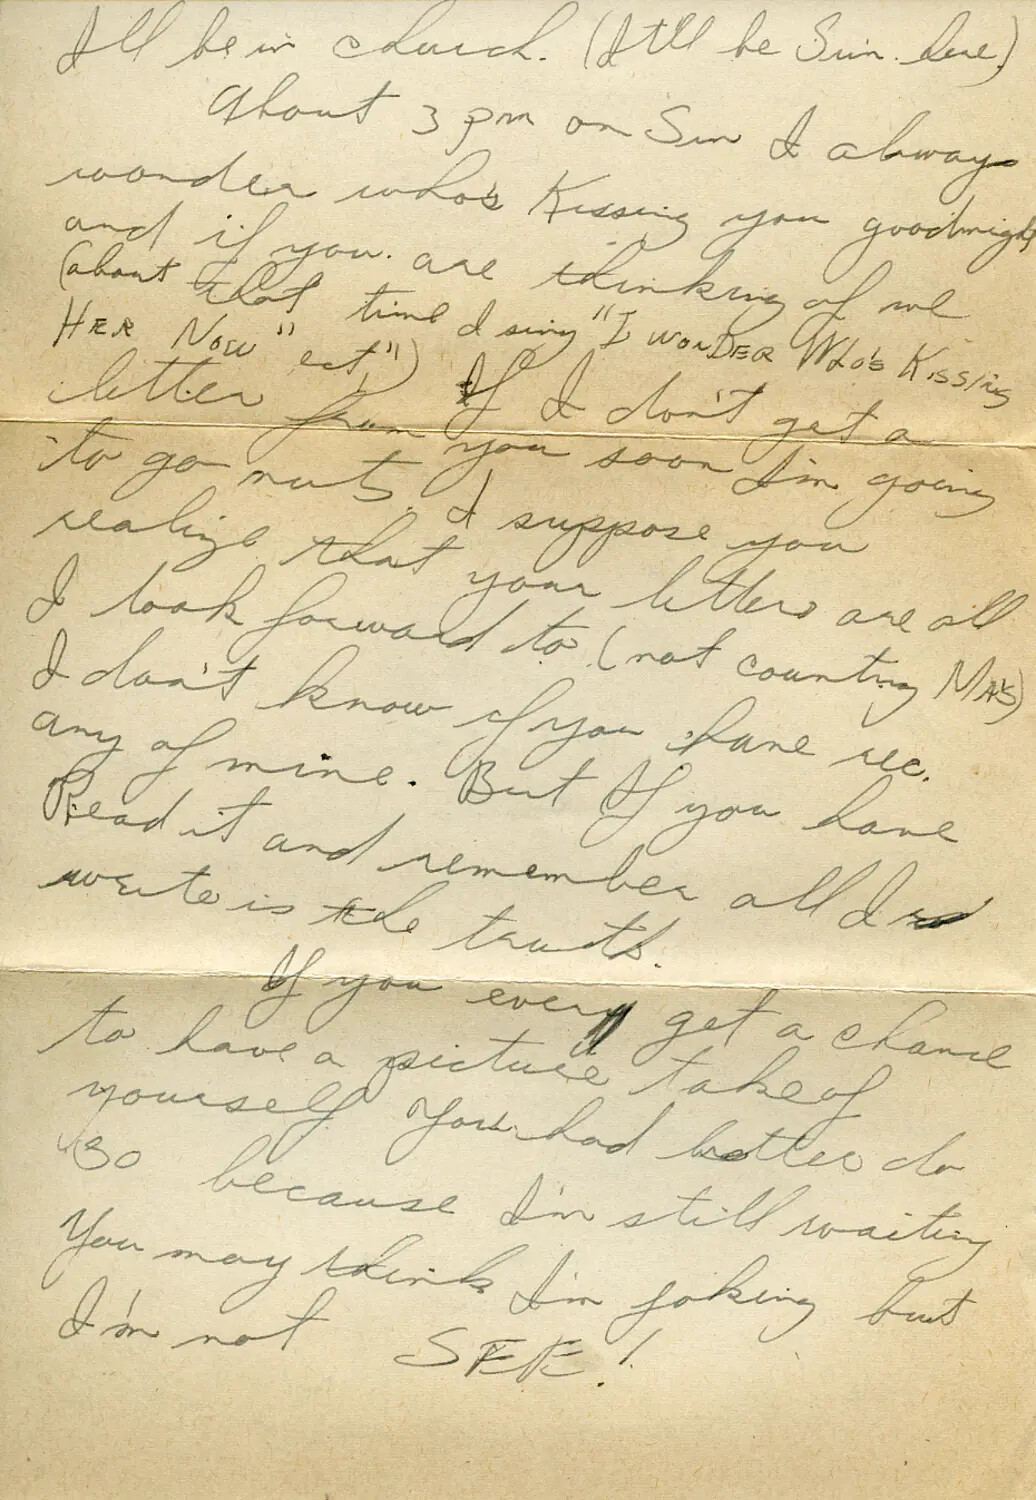 I'll be in church. (It'll be Sun. here)
About 3 pm on Sun I always
wonder who's Kissing you goodnight
and if you are thinking of me
(about that time I sing "I WONDER WHO'S KISSING
HER NOW" ect") If I don't get a
letter from you soon I'm going
to go nuts. I suppose you
realize that your letters are all
I look forward to (not counting MA'S)
I don't know if you have rec.
any of mine. But If you have
Read it and remember all I
write is the truth.
If you every get a chance
to have a picture take of
yourself You had better do
so because I'm still waiting
You may think I'm joking but
I'm not SEE!